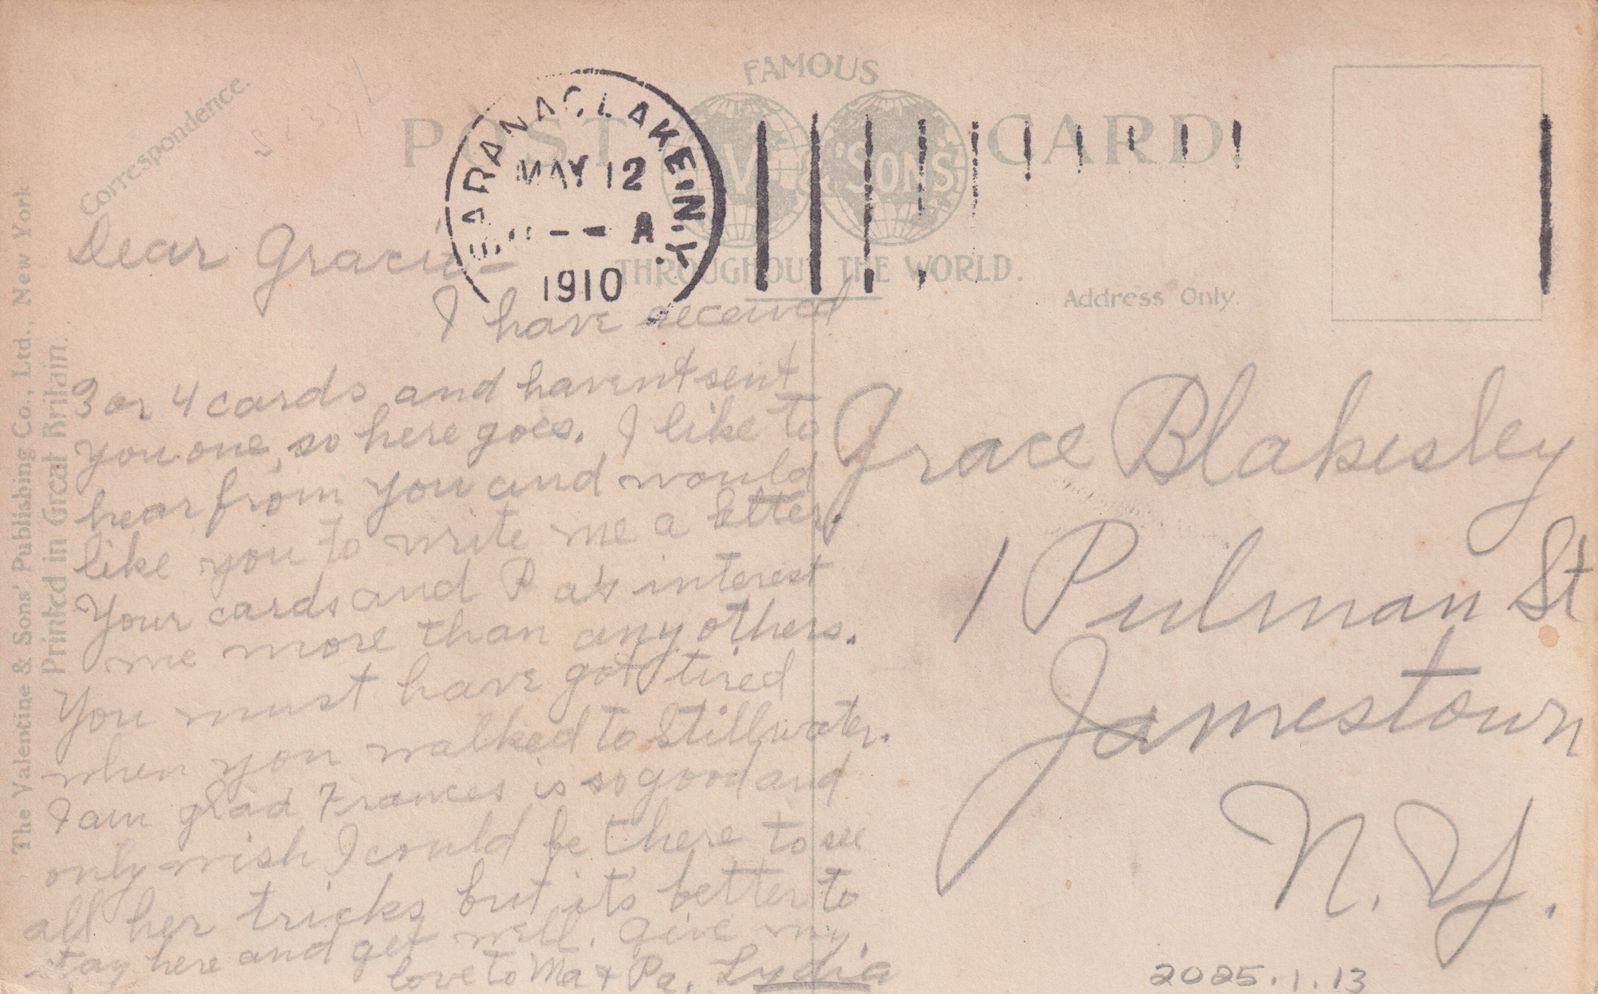 Correspondence.
FAMOUS
POST CARD.
V & SONS.
THROUGHOUT THE WORLD.
Address Only.
SARANAC LAKE, N.Y.
MAY 12
-- A
1910
Dear Gracie-
I have received
3 or 4 cards and havent sent
you one, so here goes. I like to
hear from you and would
like you to write me a letter.
Your cards and Pa's interest
me more than any others.
You must have got tired
when you walked to Stillwater.
I am glad Frances is so good and
only wish I could be there to see
all her tricks but it's better to
stay here and get well. Give my
love to Ma + Pa. Lydia
Grace Blakesley
1 Pulman St
Jamestown
N.Y.
2025.1.13
The Valentine & Sons' Publishing Co., Ltd., New York
Printed in Great Britain.